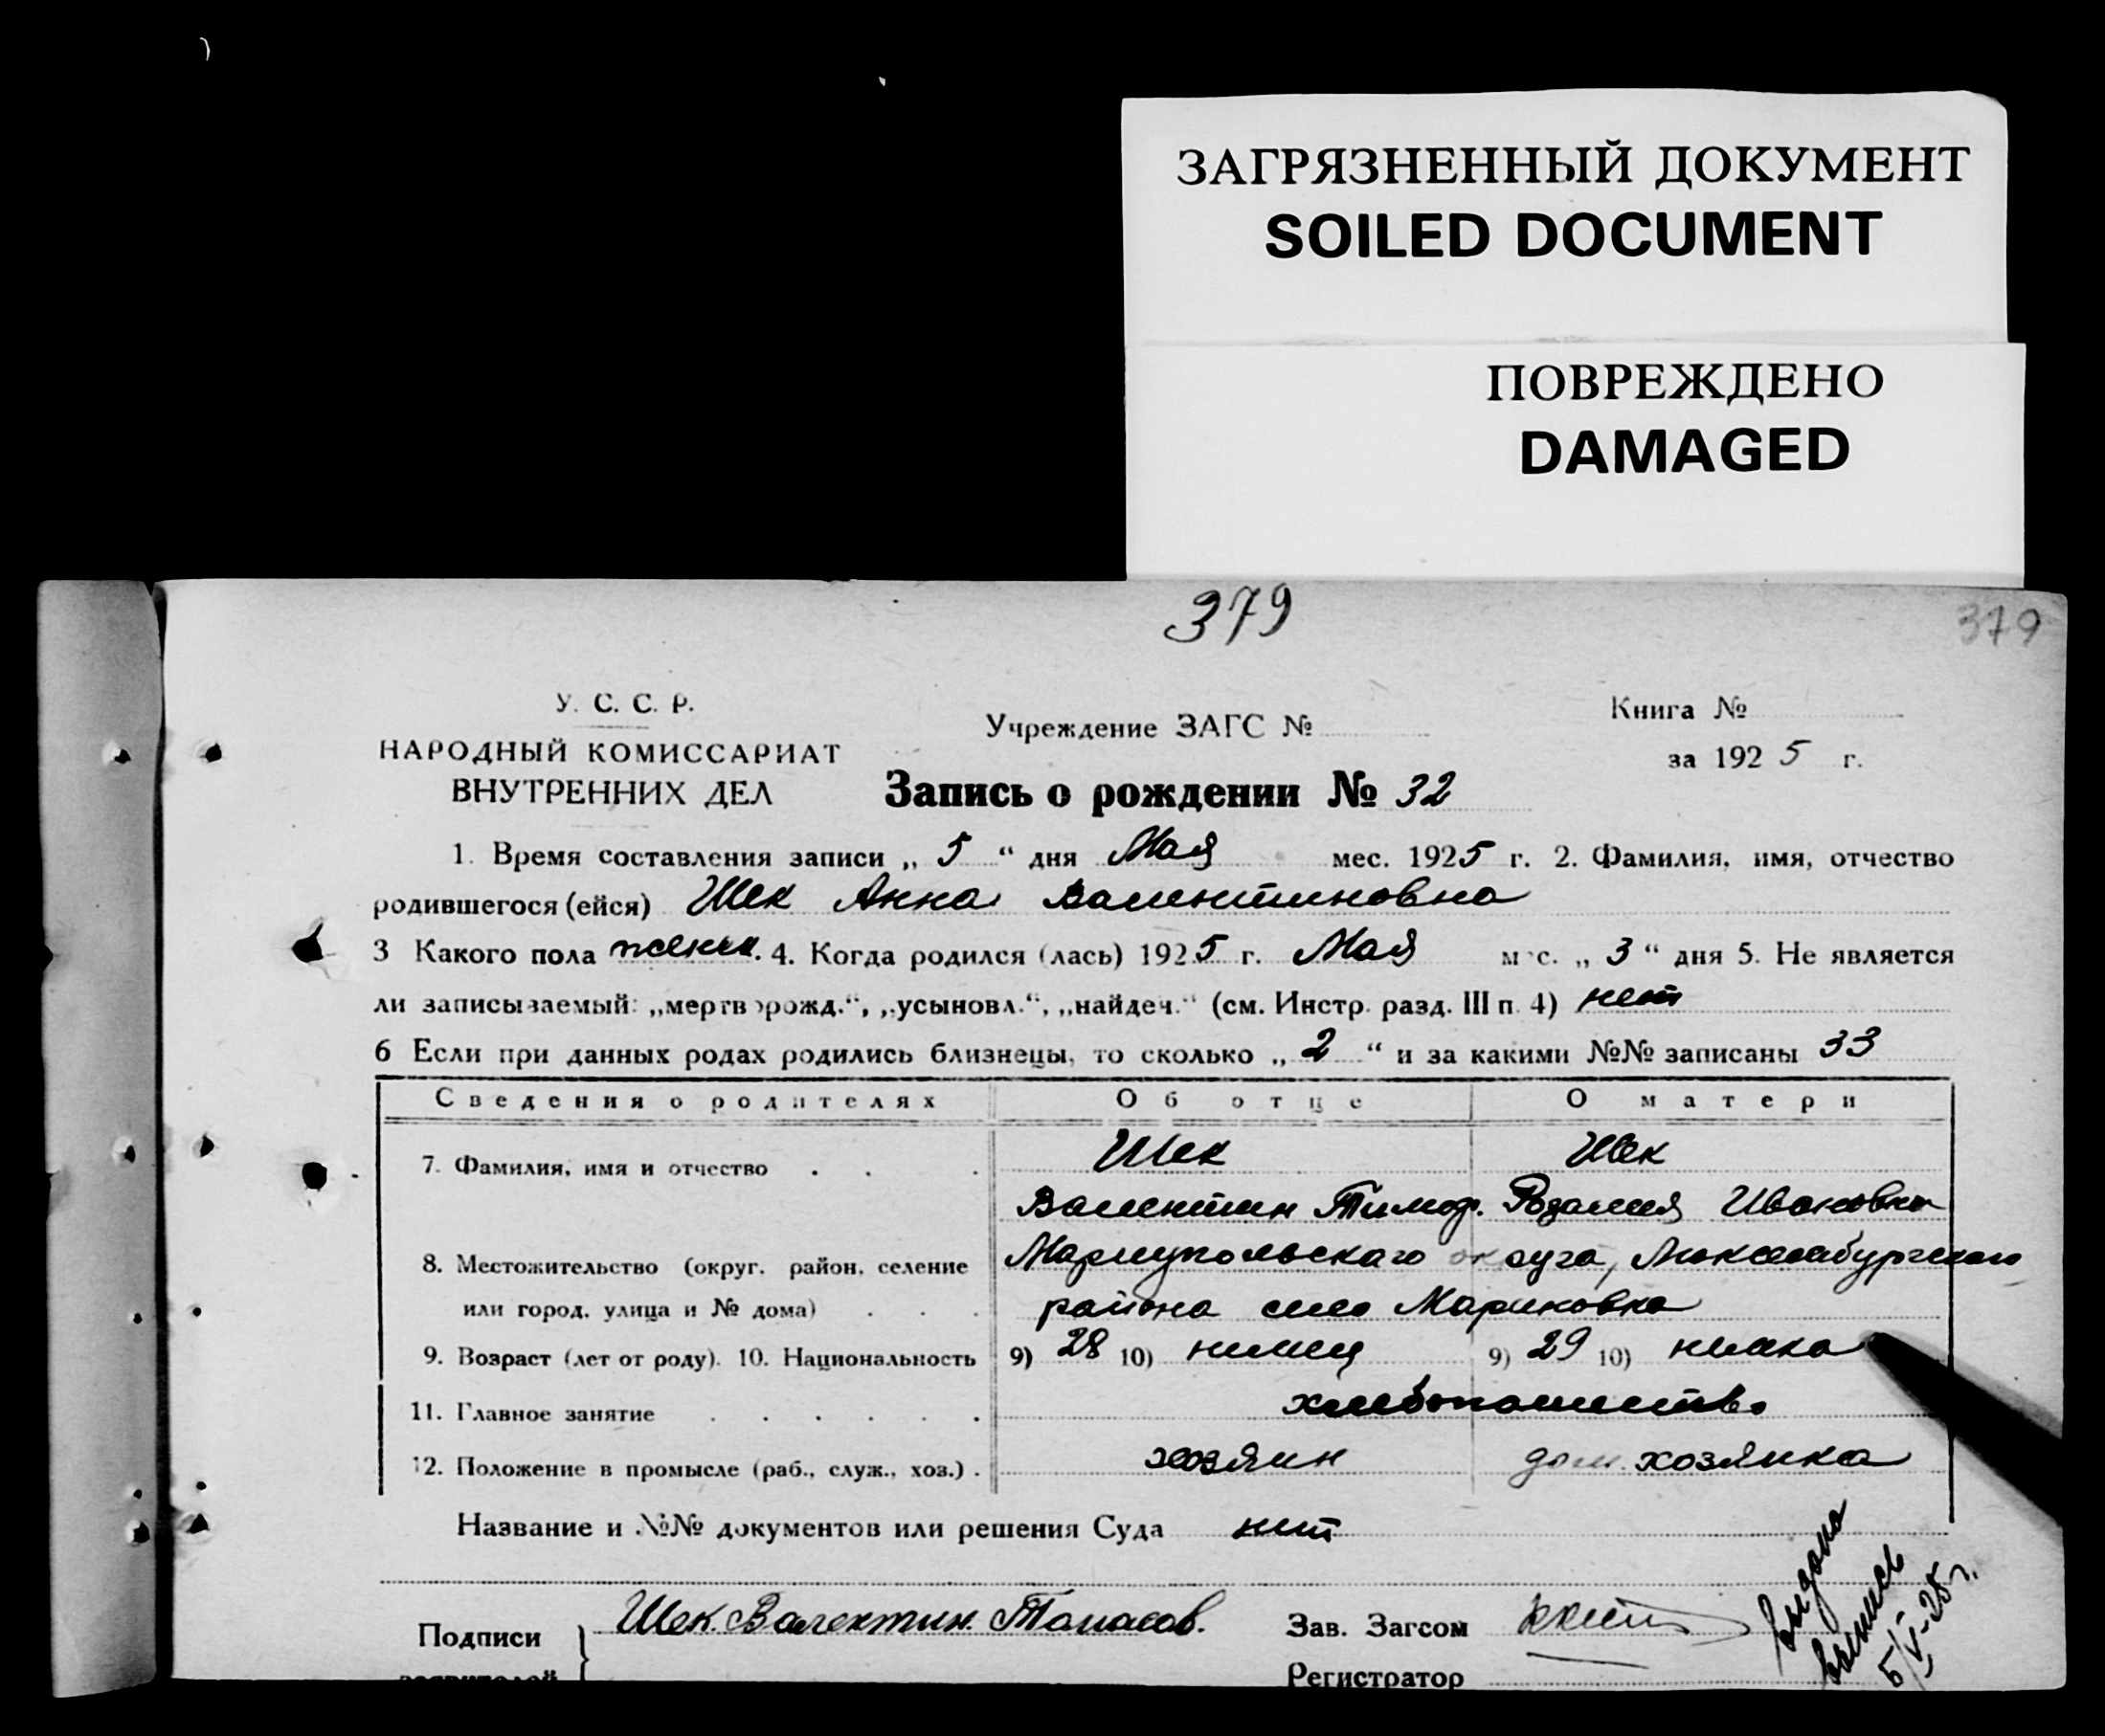 ЗАГРЯЗНЕННЫЙ ДОКУМЕНТ
SOILED DOCUMENT
ПОВРЕЖДЕНО
DAMAGED
379
379
У. С. С. Р.
НАРОДНЫЙ КОМИССАРИАТ
ВНУТРЕННИХ ДЕЛ
Учреждение ЗАГС №
Книга №
за 1925 г.
Запись о рождении № 32
1. Время составления записи „ 5 “ дня Мая мес. 1925 г. 2. Фамилия, имя, отчество
родившегося (ейся) Шек Анна Валентиновна
3 Какого пола женск. 4. Когда родился (лась) 1925 г. Мая мес. „ 3 “ дня 5. Не является
ли записываемый: „мертворожд.“, „усыновл.“, „найден.“ (см. Инстр. разд. III п. 4) нет
6 Если при данных родах родились близнецы, то сколько „ 2 “ и за какими №№ записаны 33
Сведения о родителях Об отце О матери
7. Фамилия, имя и отчество Шек Шек
Валентин Тимоф. Розалия Ивановна
8. Местожительство (округ, район, селение Мариупольскаго округа, Люксембургского
или город, улица и № дома) района село Мариновка
9. Возраст (лет от роду). 10. Национальность 9) 28 10) нимец 9) 29 10) нимка
11. Главное занятие хлебопашество
12. Положение в промысле (раб., служ., хоз.) хозяин дом. хозяйка
Название и №№ документов или решения Суда нит
Подписи Шек Валентин Зав. Загсом
заявителей Регистратор
Выдана
выпись
5/V-25 г.